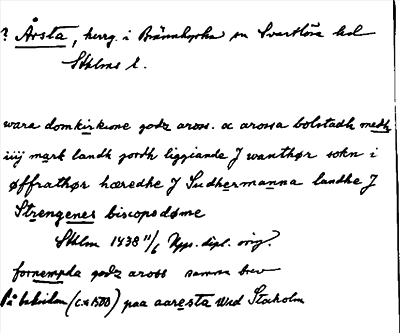 ? Årsta, herrg. i Brännkyrka sn Svartlösa hd
Sthlms l.
wara domkirkione godz aross. oc arossa bolstadh medh
iiij mark landh jordh liggiande J wanthør sokn i
øffrathør hæredhe J Sudhermanna landhe J
Strengenes biscopsdøme
Sthlm 1438 11/6 Upps. dipl. orig.
fornempda godz aross samma brev
På baksidan (c. a 1500) paa aaresta wid Stocholm